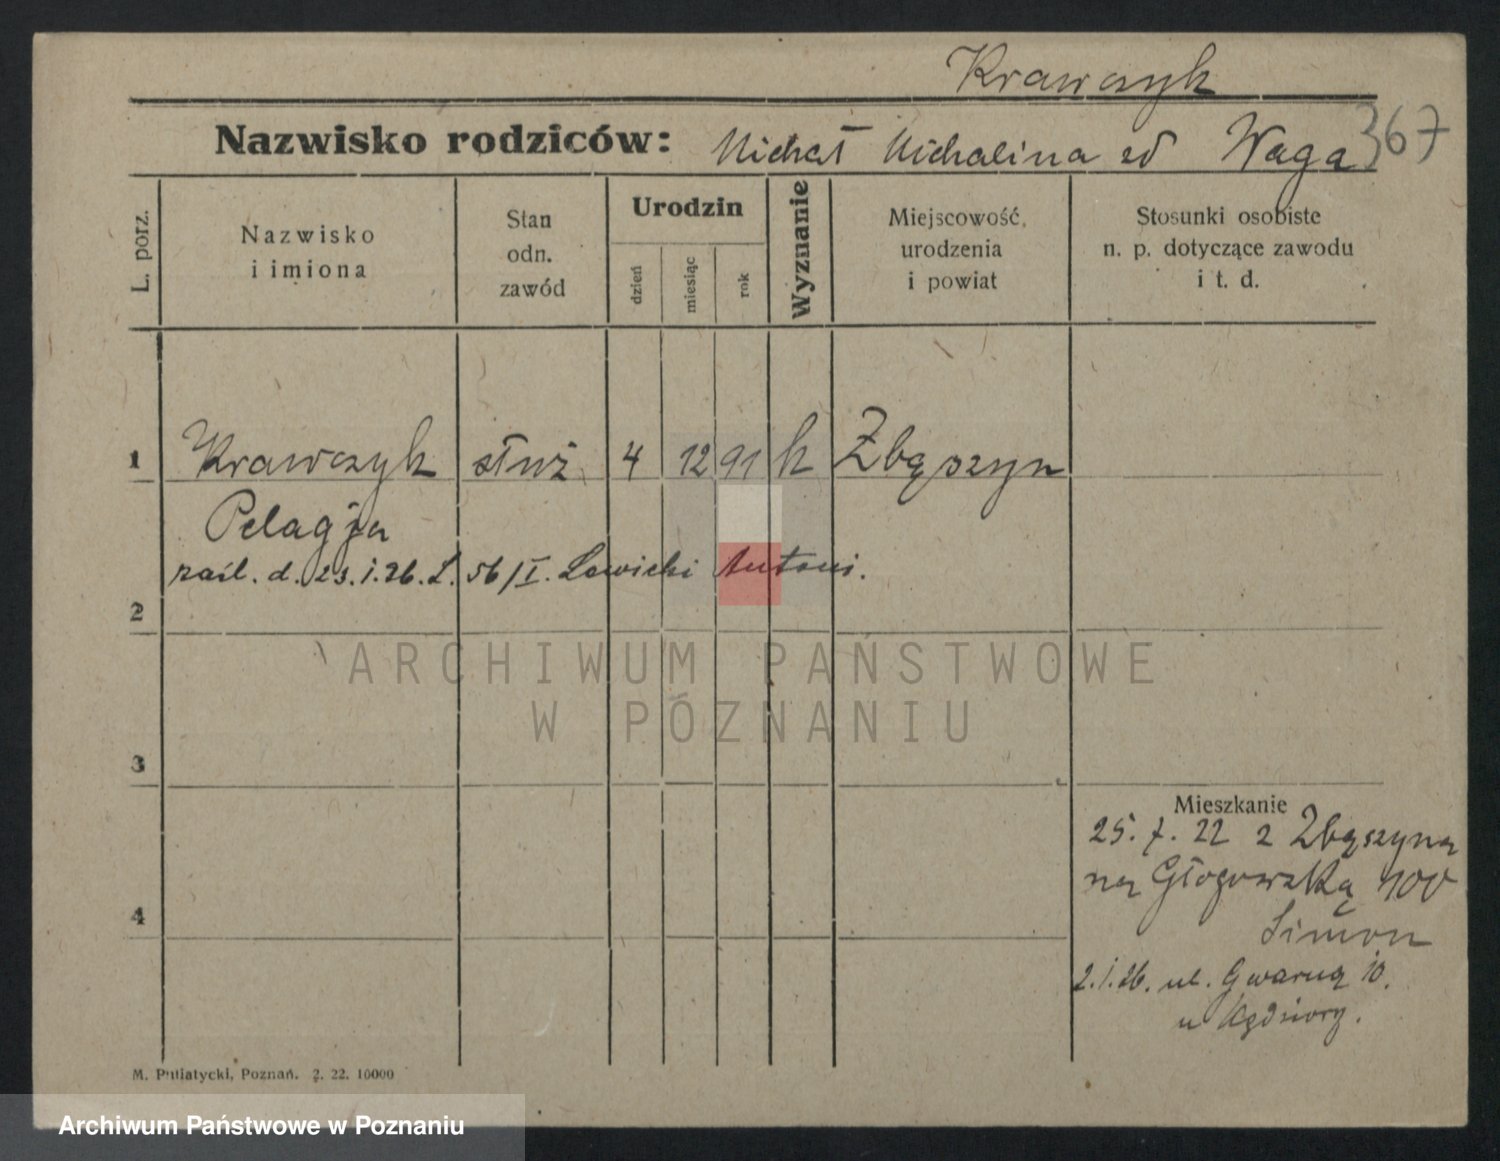 Krawczyk
Nazwisko rodziców: Michał Michalina zd Waga 367
L. porz.
Nazwisko i imiona
Stan odn. zawód
Urodzin
dzień
miesiąc
rok
Wyznanie
Miejscowość, urodzenia i powiat
Stosunki osobiste n. p. dotyczące zawodu i t. d.
1 Krawczyk służ 4 12 91 k Zbąszyn
Pelagja
zaśl. d. 23.1.26. L. 56/I. Ławicki Antoni.
2
ARCHIWUM PAŃSTWOWE
W POZNANIU
3
Mieszkanie
25. 7. 22 z Zbąszyna
na Głogowską 100
4
Simon
2.1.26. ul. Gwarną 10.
u Kędziory.
M. Putiatycki, Poznań. 2. 22. 10000
Archiwum Państwowe w Poznaniu